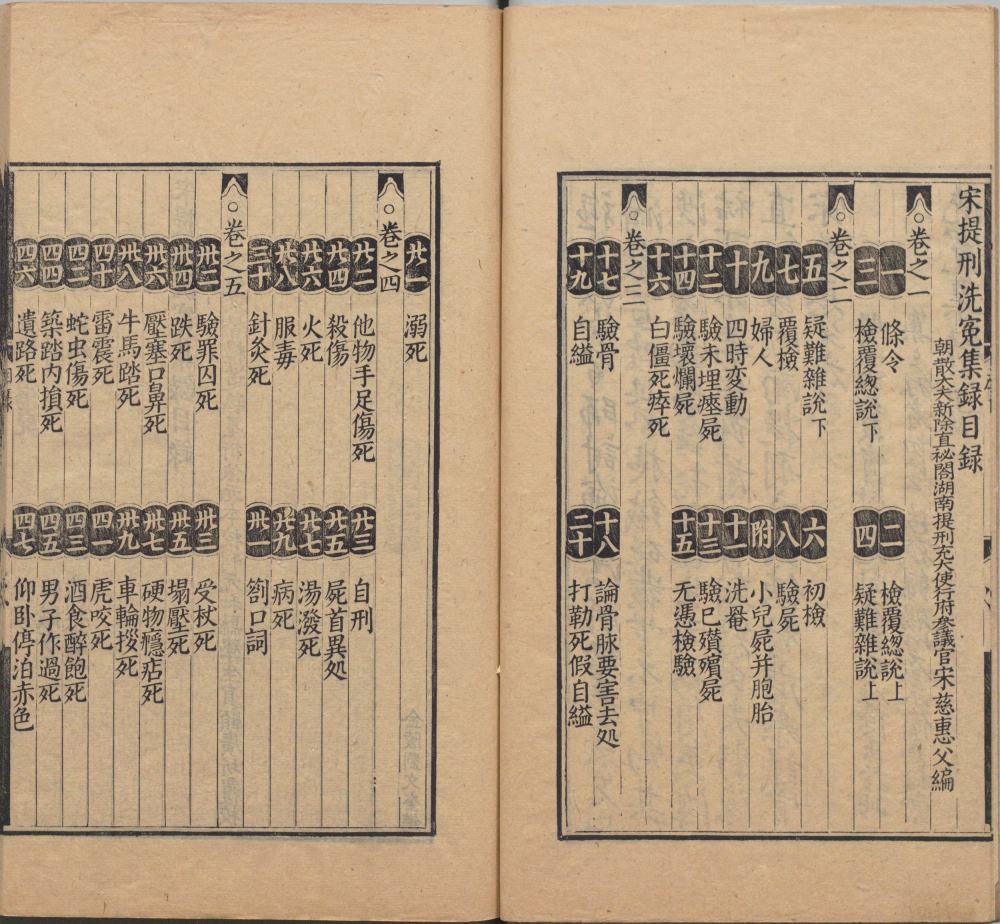 宋提刑洗冤集録目録
朝散大夫新除直祕閣湖南提刑充大使行府參議官宋慈惠父編
卷之一
一 條令 二 檢覆緫說上
三 檢覆緫說下 四 疑難雜說上
卷之二
五 疑難雜說下 六 初檢
七 覆檢 八 驗屍
九 婦人 附 小兒屍并胞胎
十 四時変動 十一 洗罨
十二 驗未埋瘞屍 十三 驗已殯殯屍
十四 驗壞爛屍 十五 无憑檢驗
十六 白僵死瘁死
卷之三
十七 驗骨 十八 論骨脉要害去処
十九 自縊 二十 打勒死假自縊
廿一 溺死
卷之四
廿二 他物手足傷死 廿三 自刑
廿四 殺傷 廿五 屍首異処
廿六 火死 廿七 湯潑死
廿八 服毒 廿九 病死
三十 針灸死 卅一 劄口詞
卷之五
卅二 驗罪囚死 卅三 受杖死
卅四 跌死 卅五 塌壓死
卅六 壓塞口鼻死 卅七 硬物癮痁死
卅八 牛馬踏死 卅九 車輪拶死
四十 雷震死 四一 虎咬死
四二 蛇虫傷死 四三 酒食醉飽死
四四 築踏内損死 四五 男子作過死
四六 遺路死 四七 仰卧停泊赤色